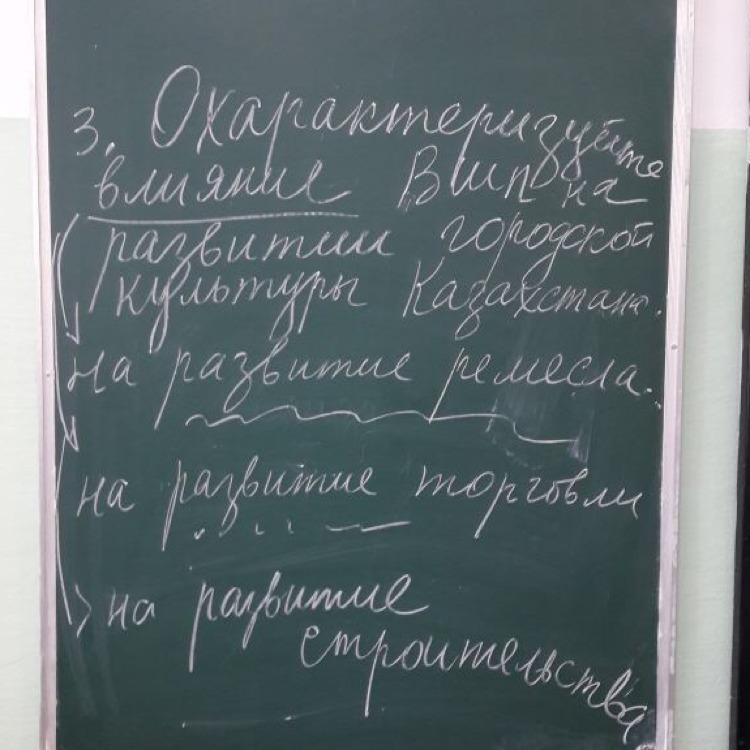 3. Охарактеризуйте
влияние ВШП на
развитии городской
культуры Казахстана.
на развитие ремесла.
на развитие торговли
на развитие
строительства